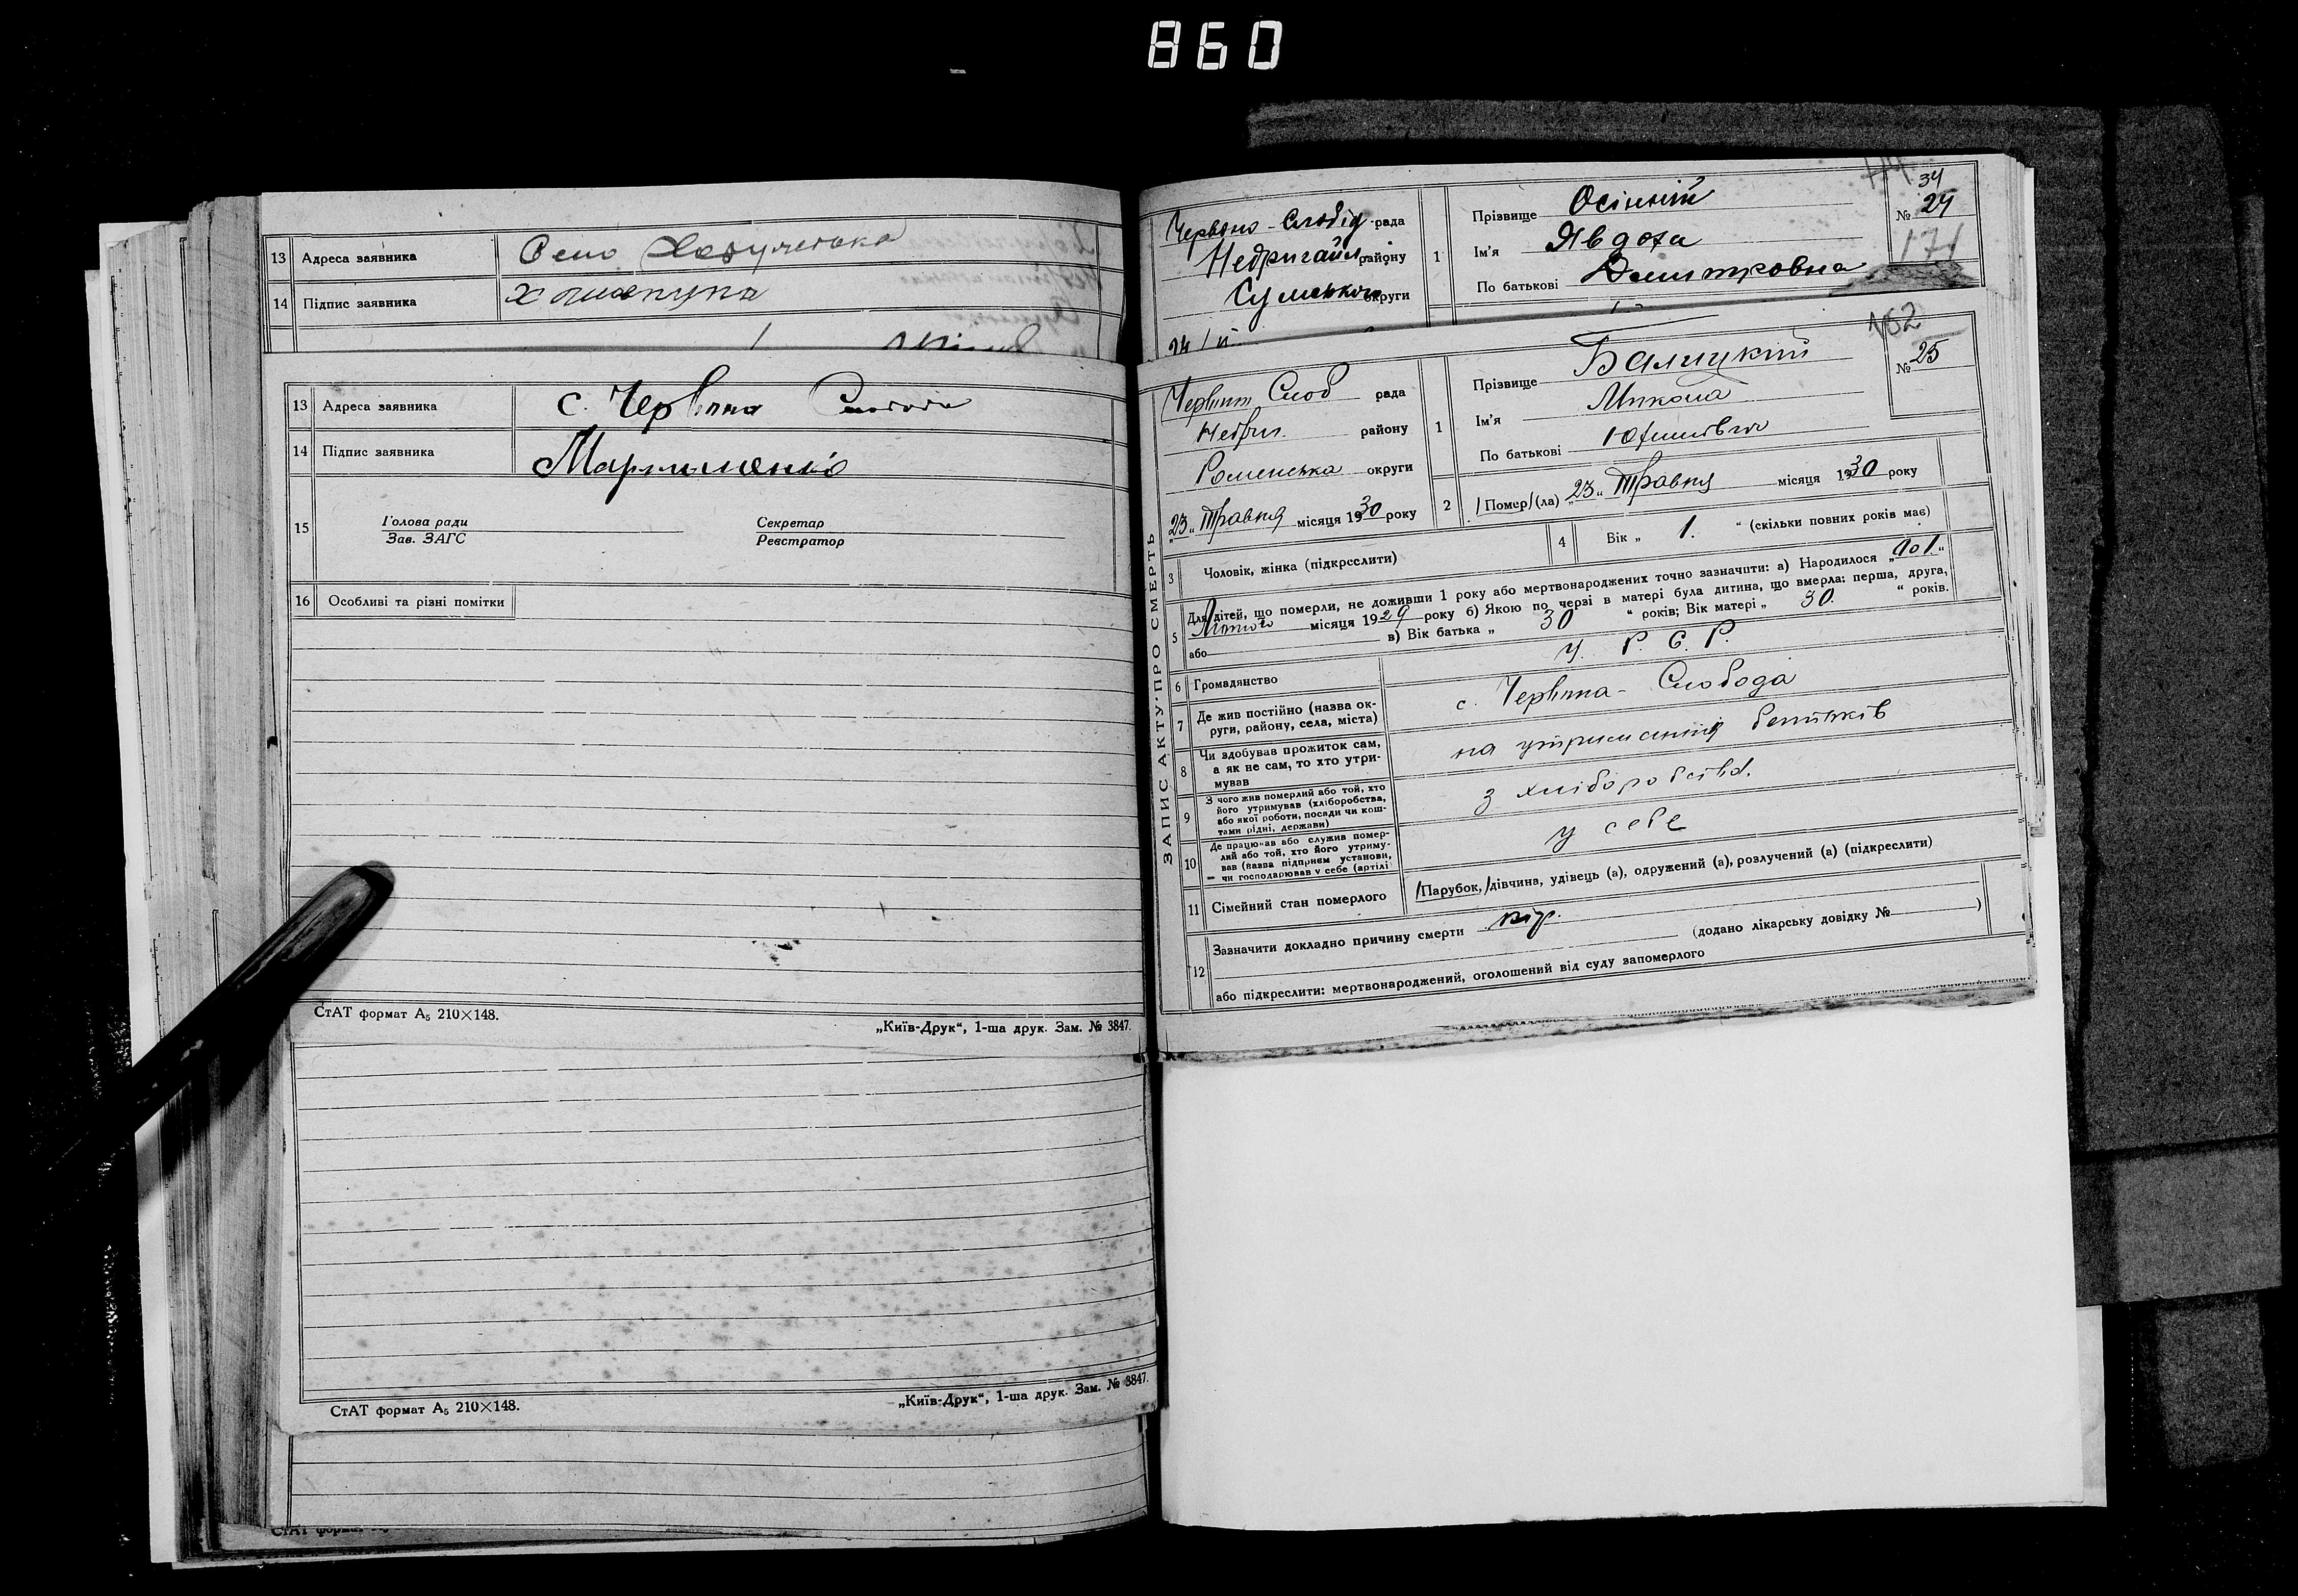 860
13 Адреса заявника Село
14 Підпис заявника
13 Адреса заявника с. Червона Слобода
14 Підпис заявника Мартименко
15 Голова ради Секретар
Зав. ЗАГС Реєстратор
16 Особливі та різні помітки
СтАТ формат А₅ 210×148. „Київ-Друк“, 1-ша друк. Зам. № 3847.
СтАТ формат А₅ 210×148. „Київ-Друк“, 1-ша друк. Зам. № 3847.
СтАТ формат
Червоно-Слобід рада
Недригайл району
Сумського округи
1 Прізвище Осінній
Ім'я Явдоха
По батькові Дмитровна
34
№ 24
171
24/
152
Червин Слоб рада
Недриг. району
Роменська округи
23 „ Травня місяця 1930 року
1 Прізвище Балицкий
Ім'я Микола
По батькові Юхимович
№ 25
2 /Помер/(ла) „23„ Травня місяця 1930 року
ЗАПИС АКТУ ПРО СМЕРТЬ
3 Чоловік, жінка (підкреслити)
4 Вік „ 1. “ (скільки повних років має)
5 Для дітей, що померли, не доживши 1 року або мертвонароджених точно зазначити: а) Народилося „
місяця 1929 року б) Якою по черзі в матері була дитина, що вмерла: перша, друга,
або в) Вік батька „ 30 “ років; Вік матері „ 30. “ років.
6 Громадянство У. Р. С. Р.
7 Де жив постійно (назва ок-
руги, району, села, міста) с. Червона-Слобода
8 Чи здобував прожиток сам,
а як не сам, то хто утри-
мував на утриманні батьків
9 З чого жив померлий або той, хто
його утримував (хліборобства,
або якої роботи, посади чи кош-
тами рідні, держави) з хліборобства.
10 Де працював або служив помер-
лий або той, хто його утриму-
вав (назва підприєм установи,
— чи господарював у себе (артілі у себе
11 Сімейний стан померлого /Парубок,/дівчина, удівець (а), одружений (а), розлучений (а) (підкреслити)
12 Зазначити докладно причину смерти кір.
(додано лікарську довідку № )
або підкреслити: мертвонароджений, оголошений від суду запомерлого